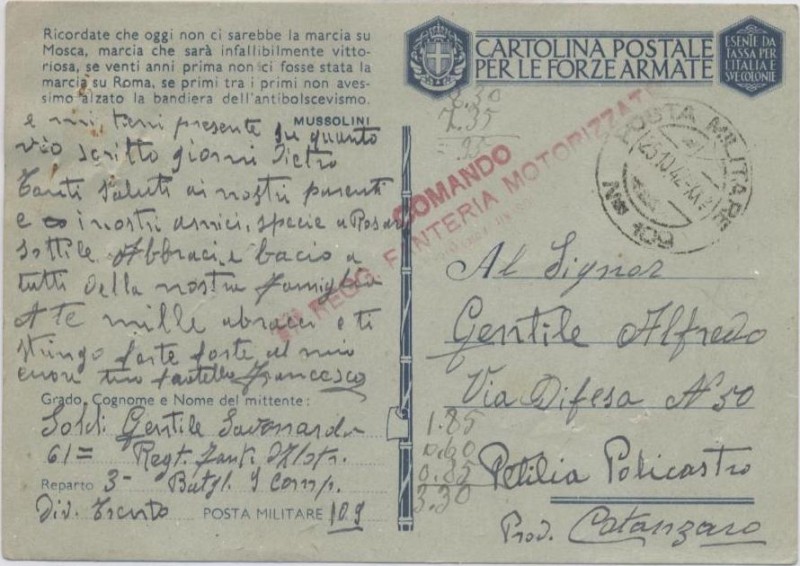 Ricordate che oggi non ci sarebbe la marcia su
Mosca, marcia che sarà infallibilmente vitto-
riosa, se venti anni prima non ci fosse stata la
marcia su Roma, se primi tra i primi non aves-
simo alzato la bandiera dell'antibolscevismo.
MUSSOLINI
e mi tieni presente su quanto
vio scritto giorni dietro
Tanti saluti ai nostri parenti
e i nostri amici, specie a Rosari
sottile Abbracci e bacio a
tutti della nostra famiglia
A te mille abracci e ti
stringo forte forte al mio
cuore tuo fratello Francesco
Grado, Cognome e Nome del mittente:
Sold. Gentile
61= Regt. Fant. Motor.
Reparto 3- Batgl. 9 Comp.
Div. Trento POSTA MILITARE 109
CARTOLINA POSTALE
PER LE FORZE ARMATE
ESENTE DA
TASSA PER
L'ITALIA E
SVE COLONIE
POSTA MILITARE
25.10.42.XX
N° 109
COMANDO
REGG. FANTERIA MOTORIZZATA
Al Signor
Gentile Alfredo
Via Difesa N° 50
Petilia Policastro
Prov. Catanzaro
1.85
0.60
0.85
3.30